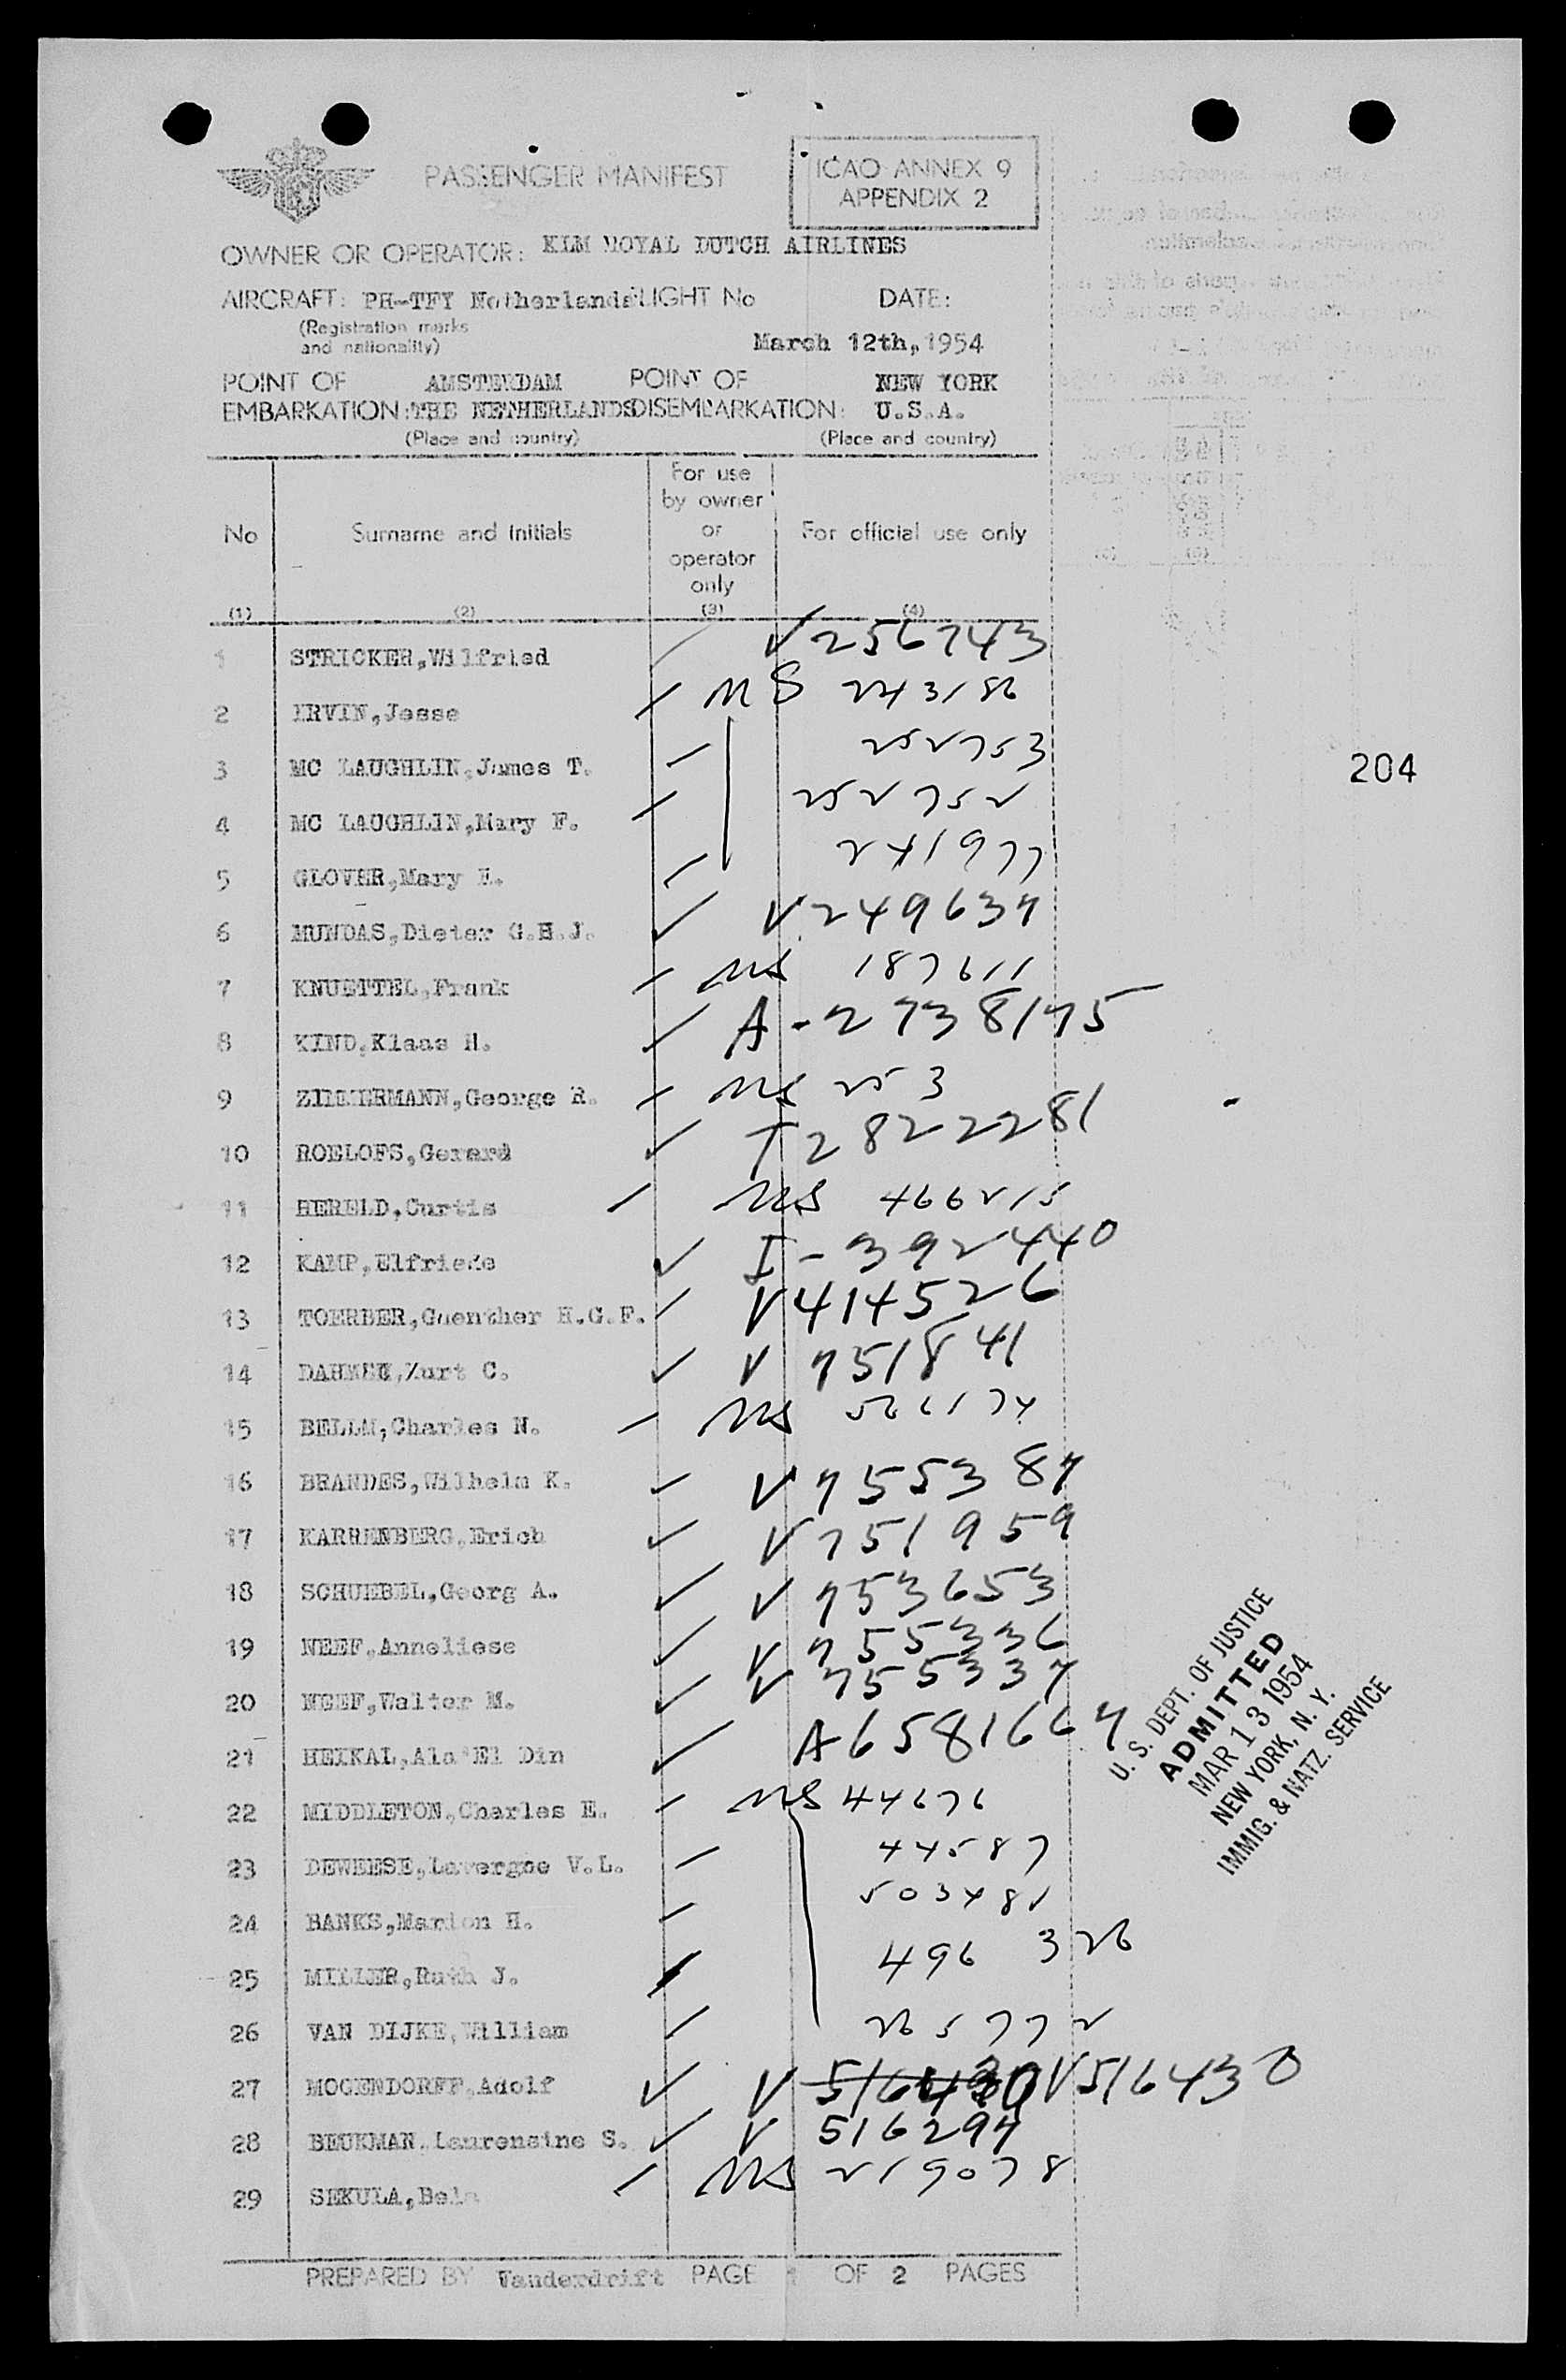 PASSENGER MANIFEST
ICAO ANNEX 9
APPENDIX 2
OWNER OR OPERATOR: KLM ROYAL DUTCH AIRLINES
AIRCRAFT: PH-TFY Netherlands FLIGHT No DATE:
(Registration marks
and nationality)
March 12th, 1954
POINT OF AMSTERDAM POINT OF NEW YORK
EMBARKATION: THE NETHERLANDS DISEMBARKATION: U.S.A.
(Place and country) (Place and country)
No Surname and Initials For use by owner or operator only For official use only
(1) (2) (3) (4)
1 STRICKER, Wilfried V 256743
2 IRVIN, Jesse NS 243186
3 MC LAUGHLIN, James T. 252753
4 MC LAUGHLIN, Mary F. 252752
5 GLOVER, Mary E. 241977
6 MUNDAS, Dieter G.H.J. V 249637
7 KNUETTEL, Frank NS 187611
8 KIND, Klaas H. A-2738175
9 ZIMMERMANN, George R. NS 253
10 ROELOFS, Gerard T 2822281
11 HERELD, Curtis NS 466215
12 KAMP, Elfriede I-392440
13 TOERBER, Guenther H.G.F. V 414526
14 Kurt C. V 751841
15 Charles N. NS 526174
16 BRANDES, Wilhelm K. V 755387
17 KARRENBERG, Erich V 751959
18 SCHUEBEL, Georg A. V 753653
19 NEEF, Anneliese V 755336
20 NEEF, Walter M. V 755337
21 HEIKAL, Ala'El Din A6581667
22 MIDDLETON, Charles E. NS 44676
23 DEWEESE, Lavergne V.L. 44587
24 BANKS, Marion H. 503481
25 MILLER, Ruth J. 496 326
26 VAN DIJKE, William 265772
27 MOGENDORFF, Adolf V 516430 V516430
28 BEUKMAN, Laurensine S. V 516297
29 SEKULA, Bela NS 219078
PREPARED BY Vanderdrift PAGE 1 OF 2 PAGES
204
U. S. DEPT. OF JUSTICE
ADMITTED
MAR 13 1954
NEW YORK, N. Y.
IMMIG. & NATZ. SERVICE